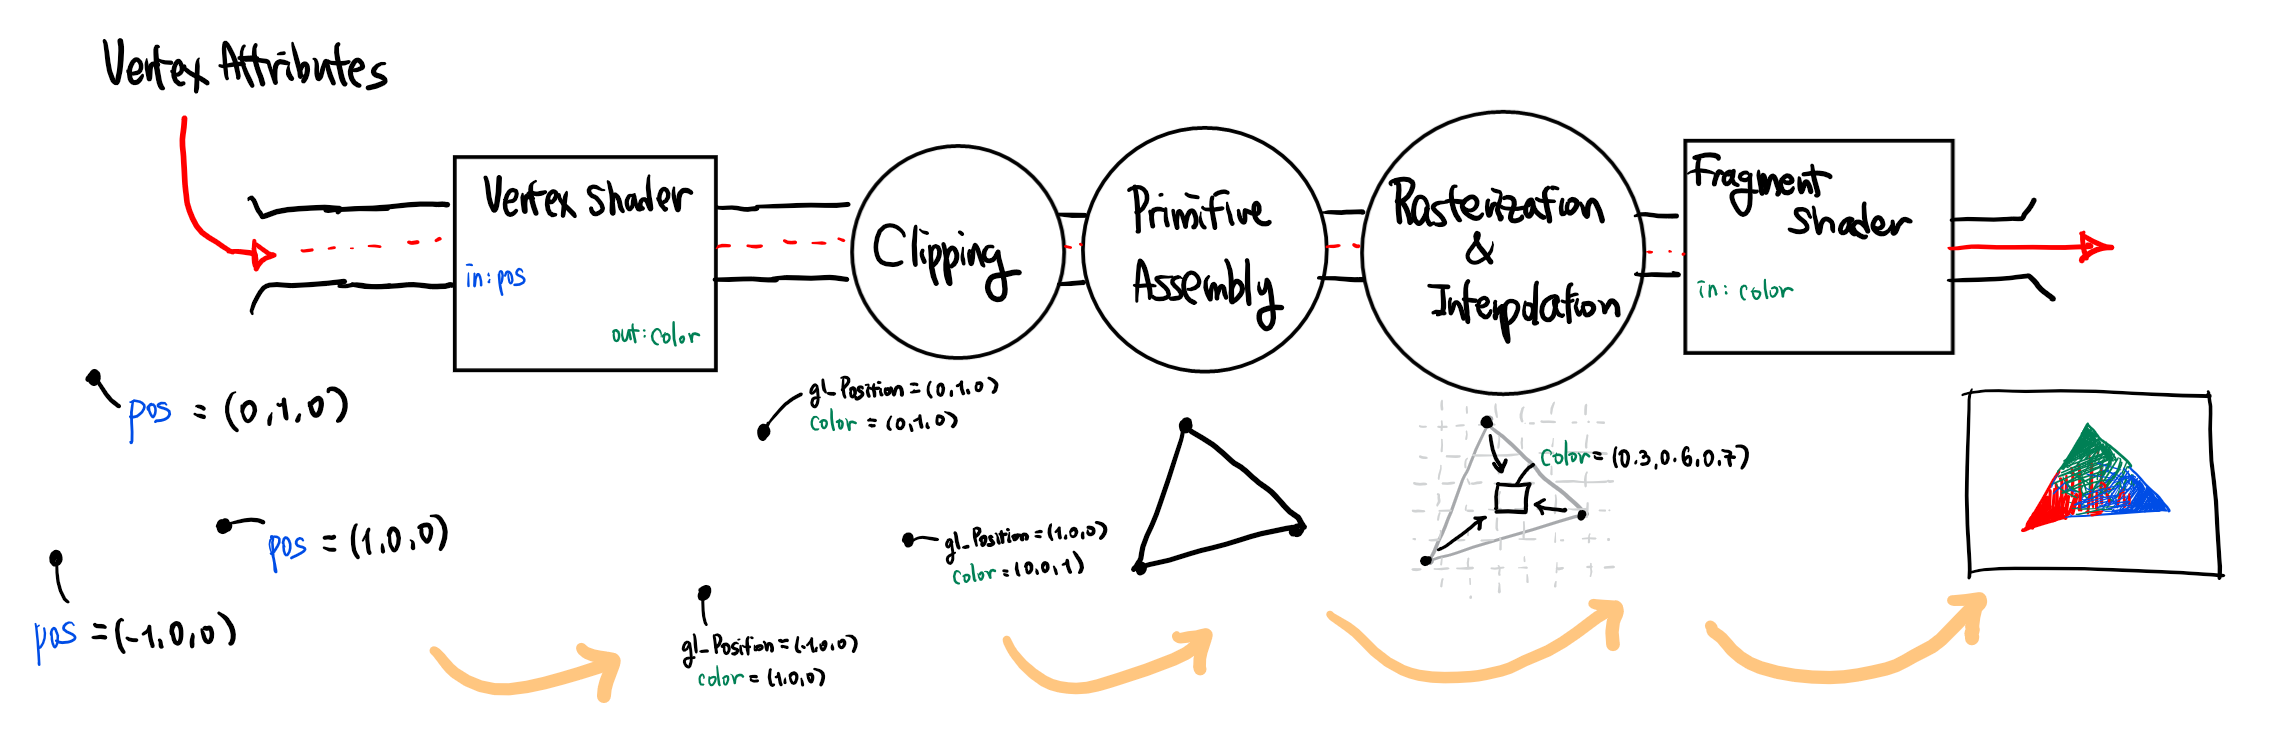 Vertex Attributes
Vertex Shader
in: pos
out: color
Clipping
Primitive
Assembly
Rasterization
&
Interpolation
Fragment
Shader
in: color
pos = (0,1,0)
pos = (1,0,0)
pos = (-1,0,0)
gl_Position = (0,1,0)
color = (0,1,0)
gl_Position = (1,0,0)
color = (0,0,1)
gl_Position = (-1,0,0)
color = (1,0,0)
color = (0.3,0.6,0.7)